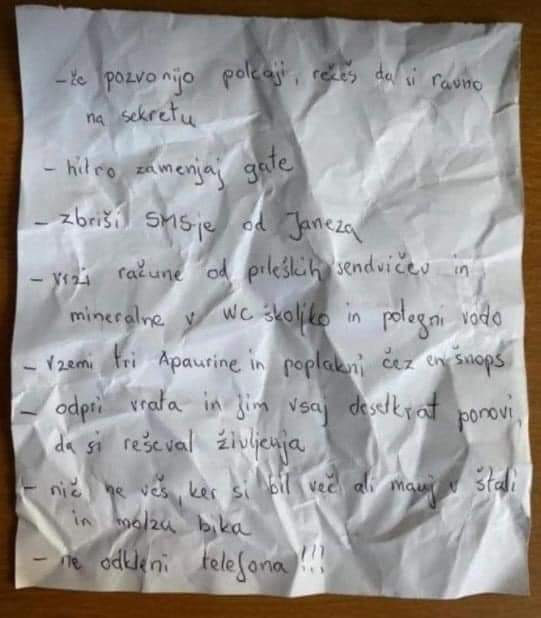 - če pozvonijo polcaji, rečeš da si ravno
na sekretu
- hitro zamenjaj gate
- zbriši SMSje od Janeza
- vrzi račune od prleških sendvičev in
mineralne v WC školjko in potegni vodo
- vzemi tri Apaurine in poplakni čez en šnops
- odpri vrata in jim vsaj desetkrat ponovi,
da si reševal življenja
- nič ne veš, ker si bil več ali manj v štali
in molzu bika
- ne odkleni telefona!!!